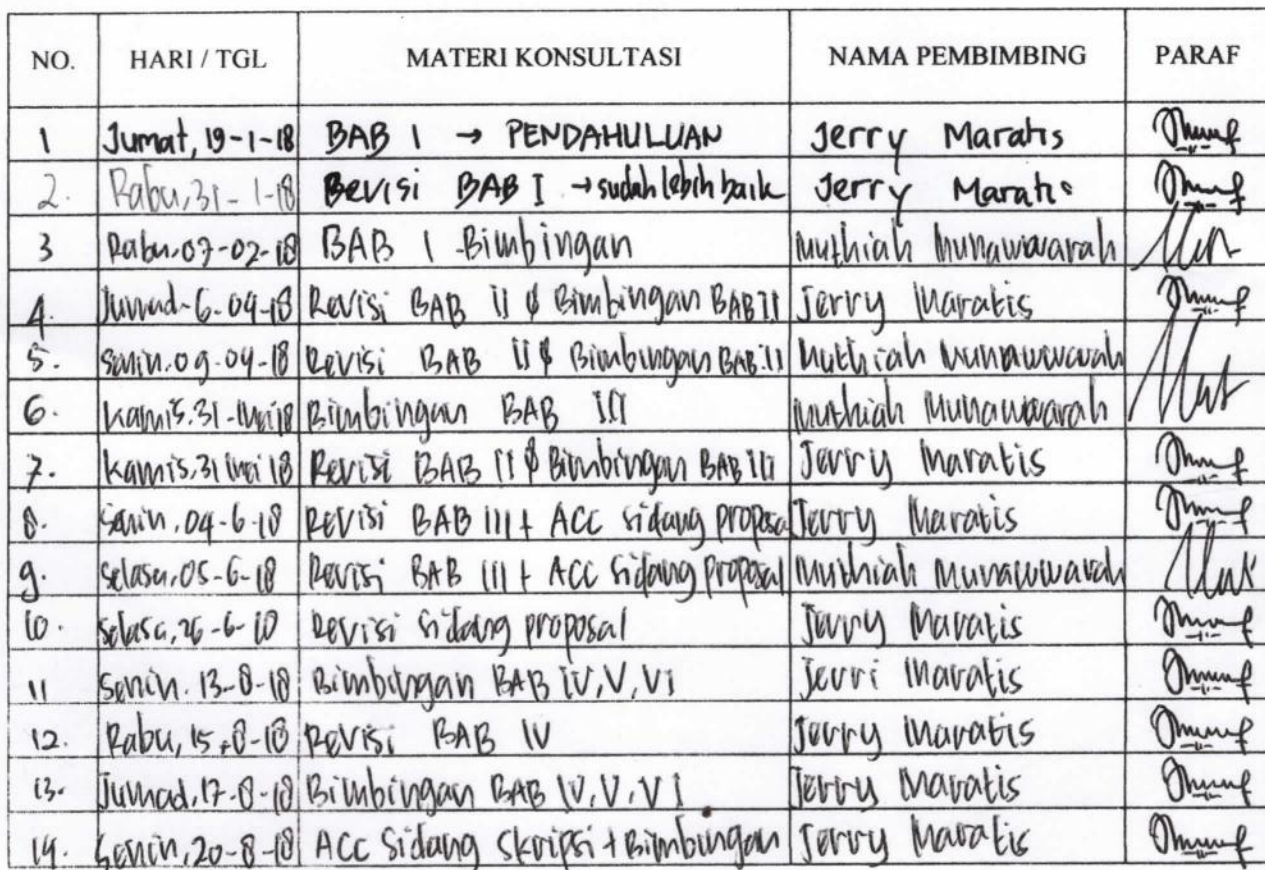 NO. HARI / TGL MATERI KONSULTASI NAMA PEMBIMBING PARAF
1 Jumat, 19-1-18 BAB I → PENDAHULUAN Jerry Maratis
2. Rabu, 31-1-18 Revisi BAB I → sudah lebih baik Jerry Maratis
3 Rabu, 07-02-18 BAB I -Bimbingan Muthiah Munawwarah
4. Jumad-6-04-18 Revisi BAB II & Bimbingan BAB II Jerry Maratis
5. Senin. 09-04-18 Revisi BAB II & Bimbingan BAB II Muthiah Munawwarah
6. Kamis. 31-Mei 18 Bimbingan BAB III Muthiah Munawwarah
7. Kamis, 31 Mei 18 Revisi BAB II & Bimbingan BAB III Jerry Maratis
8. Senin, 04-6-18 Revisi BAB III + ACC sidang proposal Jerry Maratis
9. Selasa, 05-6-18 Revisi BAB III + ACC sidang proposal Muthiah Munawwarah
10. Selasa, 26-6-18 Revisi sidang proposal Jerry Maratis
11 Senin. 13-8-18 Bimbingan BAB IV, V, VI Jerri Maratis
12. Rabu, 15-8-18 Revisi BAB IV Jerry Maratis
13. Jumad, 17-8-18 Bimbingan BAB IV, V, VI Jerry Maratis
14. Senin, 20-8-18 ACC Sidang Skripsi + Bimbingan Jerry Maratis